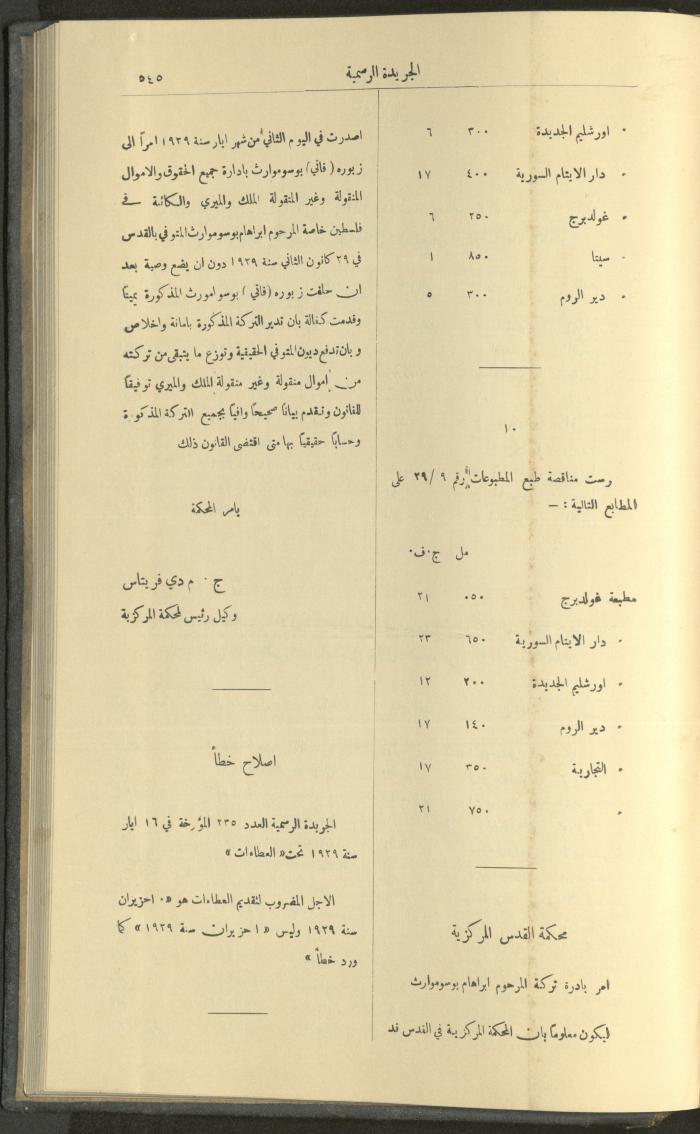 الجريدة الرسمية
٥٤٥
٠ اورشليم الجديدة ٣٠٠ ٦
٠ دار الايتام السورية ٤٠٠ ١٧
٠ غولدبرج ٢٥٠ ٦
٠ سيتا ٨٥٠ ١
٠ دير الروم ٣٠٠ ٥
١٠
رست مناقصة طبع المطبوعات رقم ٩ /٢٩ على
المطابع التالية : —
مل ج٠ف٠
مطبعة غولدبرج ٠٥٠ ٢١
٠ دار الايتام السورية ٦٥٠ ٢٣
٠ اورشليم الجديدة ٢٠٠ ١٢
٠ دير الروم ١٤٠ ١٧
٠ التجارية ٣٥٠ ١٧
٠ ٧٥٠ ٢١
محكمة القدس المركزية
امر بادرة تركة المرحوم ابراهام بوسوموارث
ليكون معلوماً بان المحكمة المركزية في القدس قد
اصدرت في اليوم الثاني من شهر ايار سنة ١٩٢٩ امراً الى
زبوره ( فاني ) بوسوموارث بادارة جميع الحقوق والاموال
المنقولة وغير المنقولة الملك والميري والكائنة في
فلسطين خاصة المرحوم ابراهام بوسوموارث المتوفي بالقدس
في ٢٩ كانون الثاني سنة ١٩٢٩ دون ان يضع وصية بعد
ان حلفت زبوره (فاني ) بوسوامورث المذكورة يميناً
وقدمت كفالة بان تدير التركة المذكورة بامانة واخلاص
وبان تدفع ديون المتوفي الحقيقية وتوزع ما يتبقى من تركته
من اموال منقولة وغير منقولة الملك والميري توفيقاً
للقانون وتقدم بياناً صحيحاً وافياً بجميع التركة المذكورة
وحساباً حقيقياً بها متى اقتضى القانون ذلك
بامر المحكمة
ج ٠ م دي فريتاس
وكيل رئيس لمحكمة المركزية
اصلاح خطأ
الجريدة الرسمية العدد ٢٣٥ المؤرخة في ١٦ ايار
سنة ١٩٢٩ تحت« العطاءات »
الاجل المضروب لتقديم العطاءات هو «١٠ حزيران
سنة ١٩٢٩ وليس «١ حزيران سنة ١٩٢٩» كما
ورد خطأ »